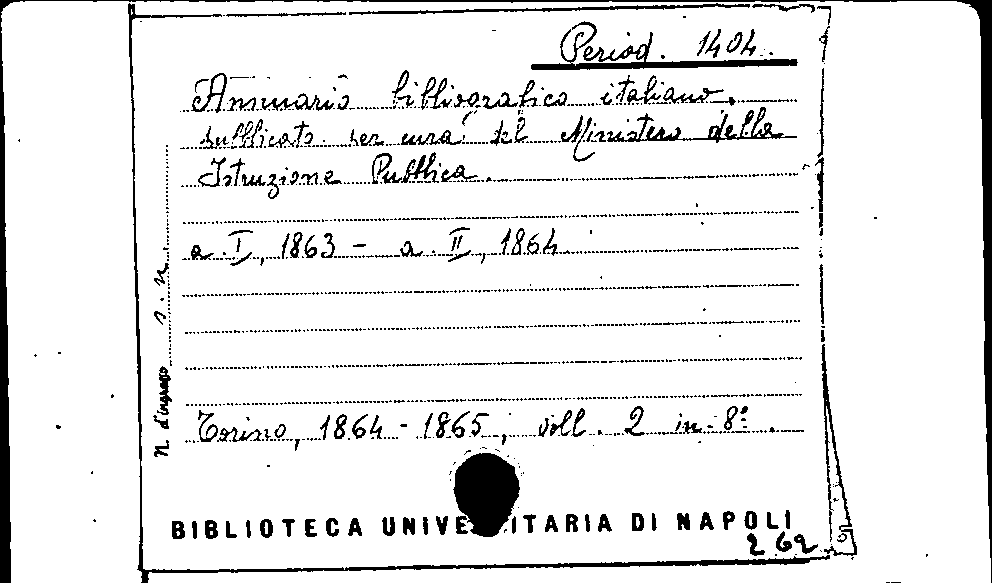 Period. 1404.
Annuario bibliografico italiano.
pubblicato per cura del Ministero della
Istruzione Pubblica.
a. I, 1863 - a. II, 1864.
N. d'ingresso s. n.
Torino, 1864 - 1865, voll. 2 in-8°.
BIBLIOTECA UNIVE ITARIA DI NAPOLI
262